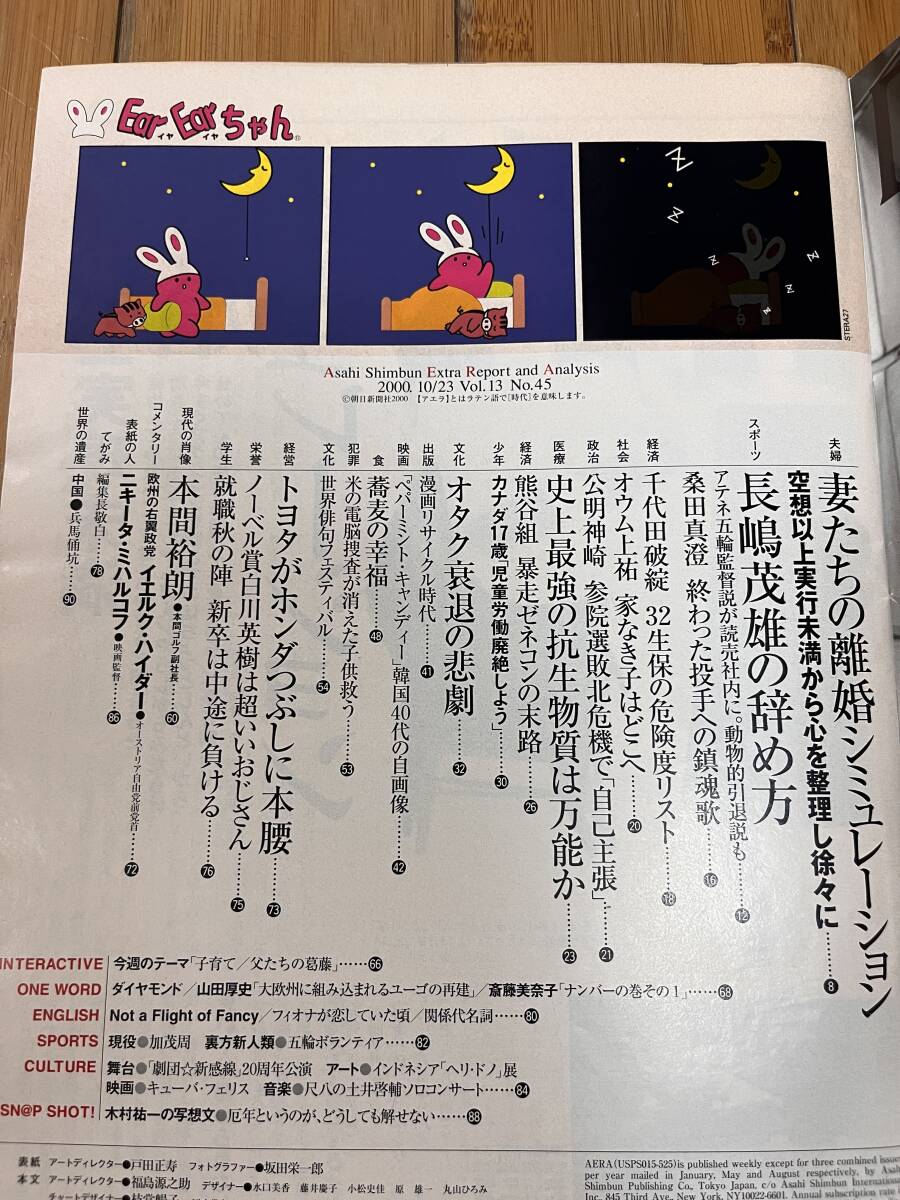 Ear Earちゃん
イヤ イヤ
Z
Z
Z
Z
Z
Z
STERA27
Asahi Shimbun Extra Report and Analysis
2000. 10/23 Vol.13 No.45
©朝日新聞社2000 【アエラ】とはラテン語で[時代]を意味します。
夫婦
妻たちの離婚シミュレーション
空想以上実行未満から心を整理し徐々に……8
スポーツ
長嶋茂雄の辞め方
アテネ五輪監督説が読売社内に。動物的引退説も……12
桑田真澄 終わった投手への鎮魂歌……16
経済
千代田破綻 32生保の危険度リスト……18
社会
オウム上祐 家なき子はどこへ……20
政治
公明神崎 参院選敗北危機で「自己主張」……21
医療
史上最強の抗生物質は万能か……23
経済
熊谷組 暴走ゼネコンの末路……26
少年
カナダ17歳「児童労働廃絶しよう」……30
文化
オタク衰退の悲劇……32
出版
漫画リサイクル時代……41
映画
「ペパーミント・キャンディー」韓国40代の自画像……42
食
蕎麦の幸福……48
犯罪
米の電脳捜査が消えた子供救う……53
文化
世界俳句フェスティバル……54
経営
トヨタがホンダつぶしに本腰……73
栄誉
ノーベル賞白川英樹は超いいおじさん……75
学生
就職秋の陣 新卒は中途に負ける……76
現代の肖像
本間裕朗●本間ゴルフ副社長……60
コメンタリー
欧州の右翼政党 イエルク・ハイダー●オーストリア自由党前党首……72
表紙の人
ニキータ・ミハルコフ●映画監督……86
てがみ
編集長敬白……78
世界の遺産
中国●兵馬俑坑……90
INTERACTIVE 今週のテーマ「子育て/父たちの葛藤」……66
ONE WORD ダイヤモンド/山田厚史「大欧州に組み込まれるユーゴの再建」/斎藤美奈子「ナンバーの巻その1」……68
ENGLISH Not a Flight of Fancy/フィオナが恋していた頃/関係代名詞……80
SPORTS 現役●加茂周 裏方新人類●五輪ボランティア……82
CULTURE 舞台●「劇団☆新感線」20周年公演 アート●インドネシア「ヘリ・ドノ」展
映画●キューバ・フェリス 音楽●尺八の土井啓輔ソロコンサート……84
SN@P SHOT! 木村祐一の写想文●厄年というのが、どうしても解せない……88
表紙 アートディレクター●戸田正寿 フォトグラファー●坂田栄一郎
本文 アートディレクター●福島源之助 デザイナー●水口美香 藤井慶子 小松史佳 原 雄一 丸山ひろみ
チャートデザイナー●
AERA (USPS015-525) is published weekly except for three combined issues
per year mailed in January, May and August respectively, by Asahi
Shimbun Publishing Co., Tokyo Japan, c/o Asahi Shimbun International
Inc., 845 Third Ave., New York, NY10022-6601. Annual subscription